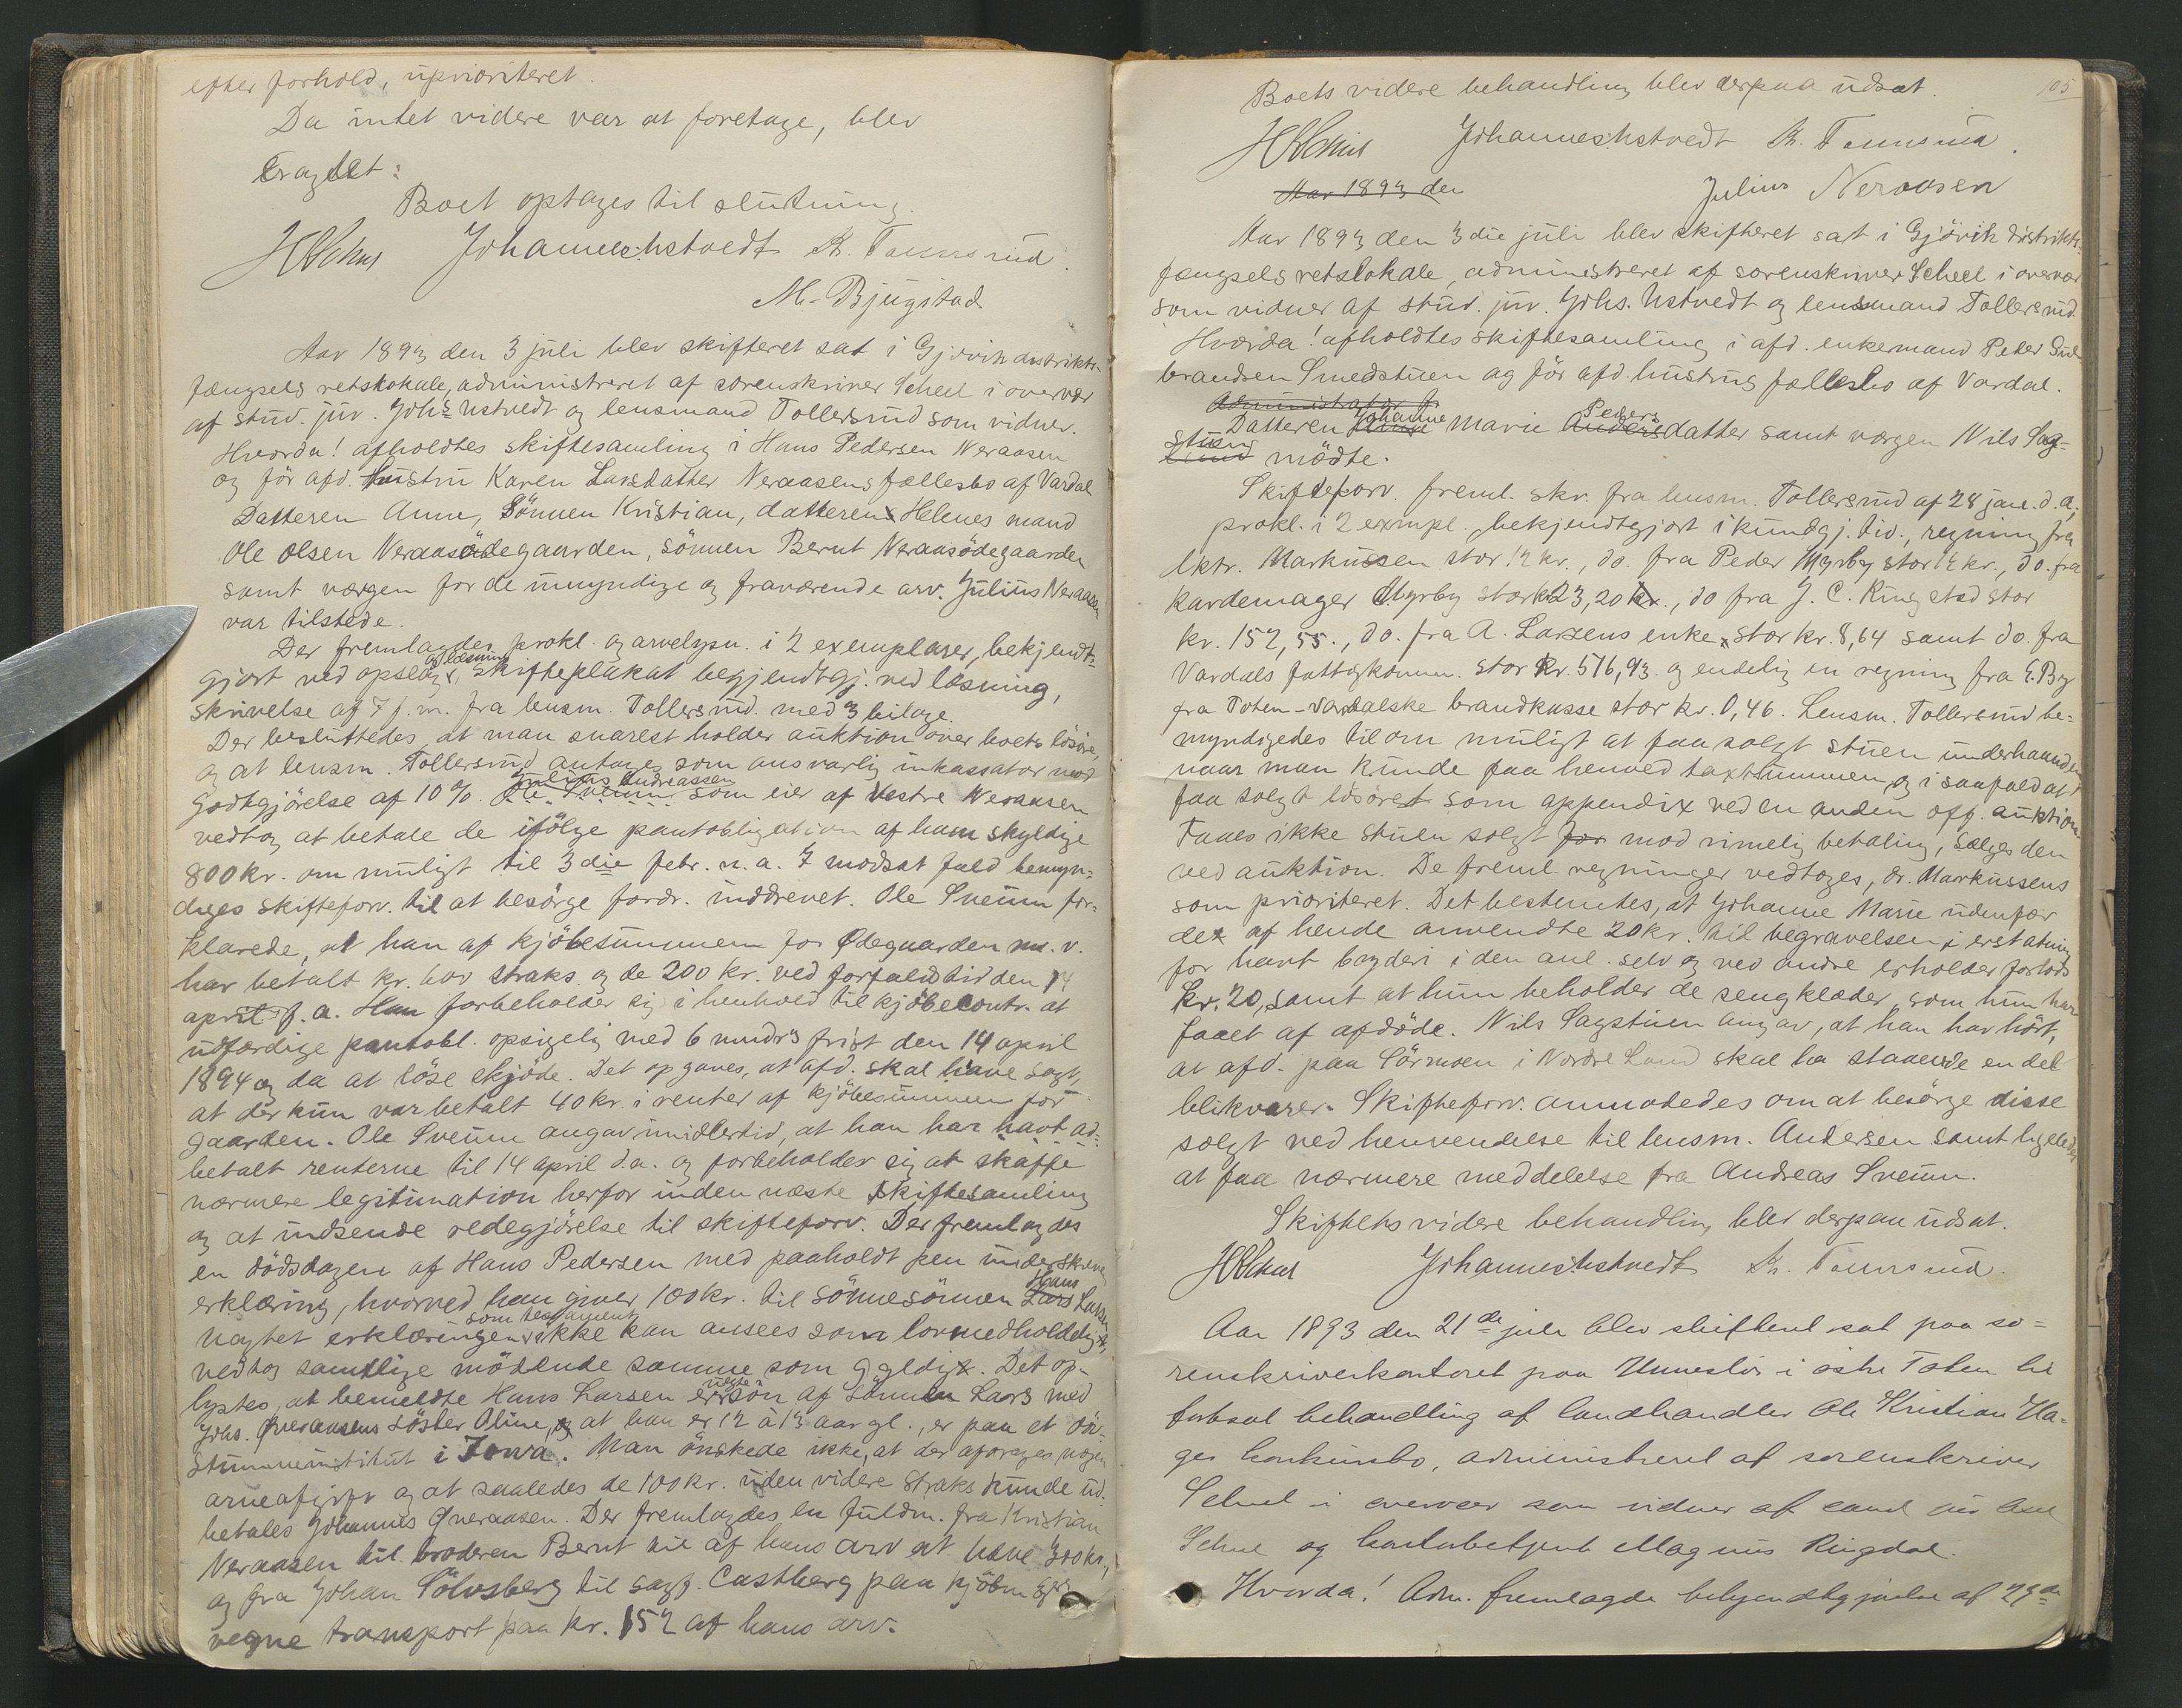 efter forhold, uprioriteret.
Da intet videre var at foretage, blev
Eragtet:
Boet optages til slutning.
HScheel Johannes Ustvedt K. Tollersrud.
M. Bjugstad
Aar 1893 den 3 juli blev skifteret sat i Gjøvik distrikts-
fængsels retslokale, administreret af sorenskriver Scheel i overvær
af stud. jur. Johs Ustvedt og lensmand Tollersrud som vidner.
Hvorda! afholdtes skiftesamling i Hans Pedersen Neraasen
og før afd. hustru Karen Larsdatter Neraasens fællesbo af Vardal
Datteren Anne, Sønnen Kristian, datteren Helenes mand
Ole Olsen Neraasødegaarden, sønnen Bernt Neraasødegaarden
samt værgen for de umyndige og fraværende arv. Julius Neraasen
var tilstede.
Der fremlagdes prokl. og arvelysn. i 2 exemplarer, bekjendt-
gjort ved opslag og læsning, skifteplakat begjendtgj. ved læsning,
skrivelse af 7 j. m. fra lensm. Tollersrud med 3 bilage.
Der besluttedes at man snarest holder auktion over boets løsøre,
og at lensm. Tollersrud antages som ansvarlig inkassator mod
godtgjørelse af 10 %. Ole Sveum Julius Andreassen som eier af Vestre Neraasen
vedtog at betale de ifølge pantobligation af ham skyldige
800 kr. om muligt til 3die febr. n. a. I modsat fald bemyn-
diges skifteforv. til at besørge fordr. inddrevet. Ole Sveum for-
klarede, at han af kjøbesummen for Ødegaarden m. v.
har betalt kr. 600 straks og de 200 kr. ved forfaldstid den 14
april f. a. Han forbeholder sig i henhold til kjøbecontr. at
udfærdige pantobl. opsigelig med 6 mndrs frist den 14 april
1894 og da at løse skjøde. Det opgaves, at afd. skal have sagt,
at der kun var betalt 40 kr. i renter af kjøbesummen for
gaarden. Ole Sveum angav imidlertid, at han har havt ad-
betalt renterne til 14 april d. a. og forbeholder sig at skaffe
nærmere legitimation herfor inden næste skiftesamling
og at indsende redegjørelse til skifteforv. Der fremlagdes
en dødsdagen af Hans Pedersen med paaholdt pen underskreven
erklæring, hvorved han giver 100 kr. til sønnesønnen Lars Hans Larsen
Uagtet erklæringen som testament ikke kan ansees som lovmedholdelig,
vedtog samtlige mødende samme som gyldig. Det op-
lystes, at bemeldte Hans Larsen er uegte søn af sønnen Lars med
Johs. Qveraasens søster Oline, og at han er 12 à 13 aar gl., er paa et døv-
stummeinstitut i Iowa. Man ønskede ikke, at der afdrages nogen
arveafgift og at saaledes de 100 kr. uden videre straks kunde ud-
betales Johannes Qveraasen. Der fremlagdes en fuldm. fra Kristian
Neraasen til broderen Bernt til af hans arv at hæve 300 kr.,
og fra Johan Sølvsberg til sagf. Castberg paa kjøbm.
vegne transport paa kr. 152 af hans arv.
105
Boets videre behandling blev derpaa udsat.
HScheel Johannes Ustvedt K. Tollersrud.
Aar 1893 den
Julius Neraasen
Aar 1893 den 3die juli blev skifteret sat i Gjøvik distrikts-
fængsels retslokale, administreret af sorenskriver Scheel i overvær
som vidner af stud. jur. Johs. Ustvedt og lensmand Tollersrud.
Hvorda! afholdtes skiftesamling i afd. enkemand Peder Gul-
brandsen Smedstuen og før afd. hustrus fællesbo af Vardal.
Administrator fr
Datteren Anne Johanne Marie Anders Peders datter samt værgen Nils Sag-
lund stuen mødte.
Skifteforv. freml. skr. fra lensm. Tollersrud af 28 jan. d. a.,
prokl. i 2 exempl. bekjendtgjort i kundgj. tid., regning fra
dktr. Markussen stor 12 kr., do. fra Peder Myrby stor 12 kr., do. fra
kardemager Myrby stor kr 23,20 kr., do fra J. C. Ringstad stor
kr. 152,55., do. fra A. Larsens enke stor kr. 8,64 samt do. fra
Vardals fattigkomm. stor kr. 516,93. og endelig en regning fra E. By
fra Toten-Vardalske brandkasse stor kr. 0,46. Lensm. Tollersrud be-
myndigedes til om muligt at faa solgt stuen underhaanden
naar man kunde faa henved taxtsummen, og i saafald at
faa solgt løsøret som appendix ved en anden off. auktion
Faaes ikke stuen solgt for mod rimelig betaling, sælges den
ved auktion. De freml. regninger vedtoges, dr. Markussens
som prioriteret. Det bestemtes, at Johanne Marie udenfor
de af hende anvendte 20 kr. til begravelsen i erstatning
for havt bryderi i den anl. selv og ved andre erholder forlods
kr. 20, samt at hun beholder de sengklæder, som hun har
faaet af afdøde. Nils Sagstuen angav, at han har hørt,
at afd. paa Sørmoen i Nordre Land skal ha staaende en del
blikvarer. Skifteforv. anmodedes om at besørge disse
solgt ved henvendelse til lensm. Andersen samt ligeledes
at faa nærmere meddelelse fra Andreas Sveum.
Skiftets videre behandling blev derpaa udsat.
HScheel Johannes Ustvedt K. Tollersrud.
Aar 1893 den 21de juli blev skifteret sat paa so-
renskriverkontoret paa Hunnselv i østre Toten til
fortsat behandling af landhandler Ole Kristian Ha-
ges konkursbo, administreret af sorenskriver
Scheel i overvær som vidner af cand jur Axel
Scheel og kontorbetjent Magnus Ringdal.
Hvorda! Adm. fremlagde bekjendtgjørelse af 29de